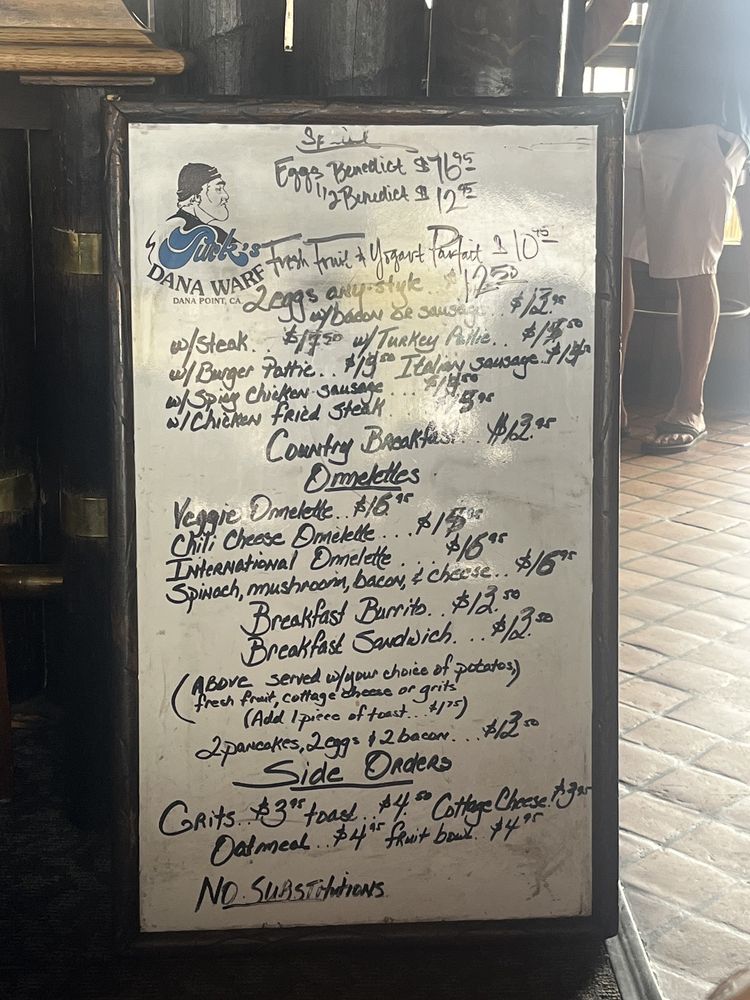 Eggs Benedict $16.95
1/2 Benedict $12.95
Turk's
DANA WARF
DANA POINT, CA.
Fresh Fruit & Yogart Parfait $10.75
2 eggs any-style.. $12.50
w/bacon or sausage... $13.95
w/steak.. $17.50 w/Turkey Pattie... $15.50
w/Burger Pattie... $15.50 Italian sausage..
w/Spicy Chicken sausage....
w/ Chicken fried steak
Country Breakfast... $13.95
Ormelettes
Veggie Ormelette.. $16.95
Chili Cheese Ormelette.... $15.95
International Ormelette.. $16.95
Spinach, mushroom, bacon, & cheese... $16.95
Breakfast Burrito.. $13.50
Breakfast Sandwich... $13.50
(Above served w/your choice of potatos,)
fresh fruit, cottage cheese or grits
(Add 1 piece of toast... $1.75)
2 pancakes, 2 eggs & 2 bacon... $13.50
Side Orders
Grits.. $3.95 toast.. $4.50 Cottage Cheese. $3.95
Oatmeal.. $4.95 fruit bowl.. $4.95
NO. Substitutions